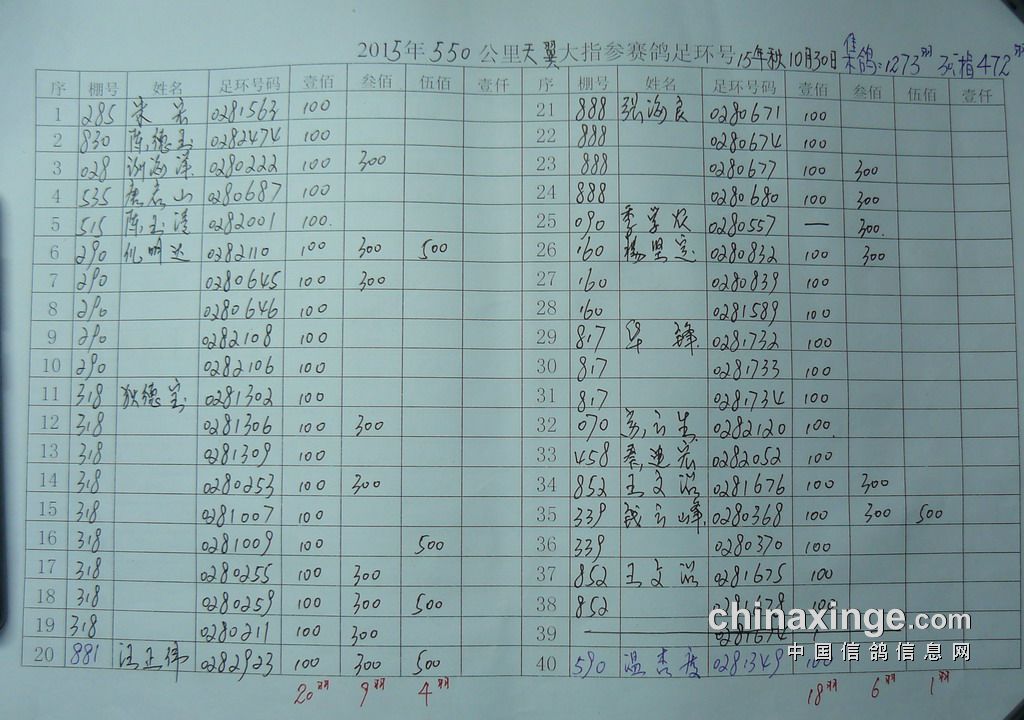 2015年550公里天翼大指参赛鸽足环号 15年秋10月30日 集鸽:1273羽 指472羽
序 棚号 姓名 足环号码 壹佰 叁佰 伍佰 壹仟 序 棚号 姓名 足环号码 壹佰 叁佰 伍佰 壹仟
1 285 0281563 100 21 888 张海良 0280671 100
2 830 陈德玉 0282474 100 22 888 0280674 100
3 028 海洋 0280222 300 23 888 0280677 100 300
4 535 山 0280687 100 24 888 0280680 100 300
5 515 陈玉清 0282001 100 25 090 季学 0280557 — 300
6 290 仇明达 0282110 100 300 500 26 160 杨坚定 0280832 100 300
7 290 0280645 100 300 27 160 0280839 100
8 290 0280646 100 28 160 0281589 100
9 290 0282108 100 29 817 华锋 0281732 100
10 290 0282106 100 30 817 0281733 100
11 318 狄德宝 0281302 100 31 817 0281734 100
12 318 0281306 100 300 32 070 0282120 100
13 318 0281309 100 33 458 宏 0282052 100
14 318 0280253 100 300 34 852 王文 0281676 100 300
15 318 0281007 100 35 339 钱云峰 0280368 100 300 500
16 318 0281009 100 500 36 339 0280370 100
17 318 0280255 100 300 37 852 王文 0281675 100
18 318 0280259 100 300 500 38 852 0281678 100
19 318 0280211 100 300 39 — 0281674
20 881 汪正伟 0282923 100 300 500 40 590 温 0281349 100
20羽 9羽 4羽 18羽 6羽 1羽
chinaxinge.com
中国信鸽信息网